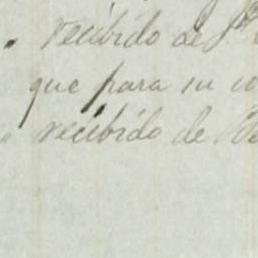 recibido de
que para su co
recibido de